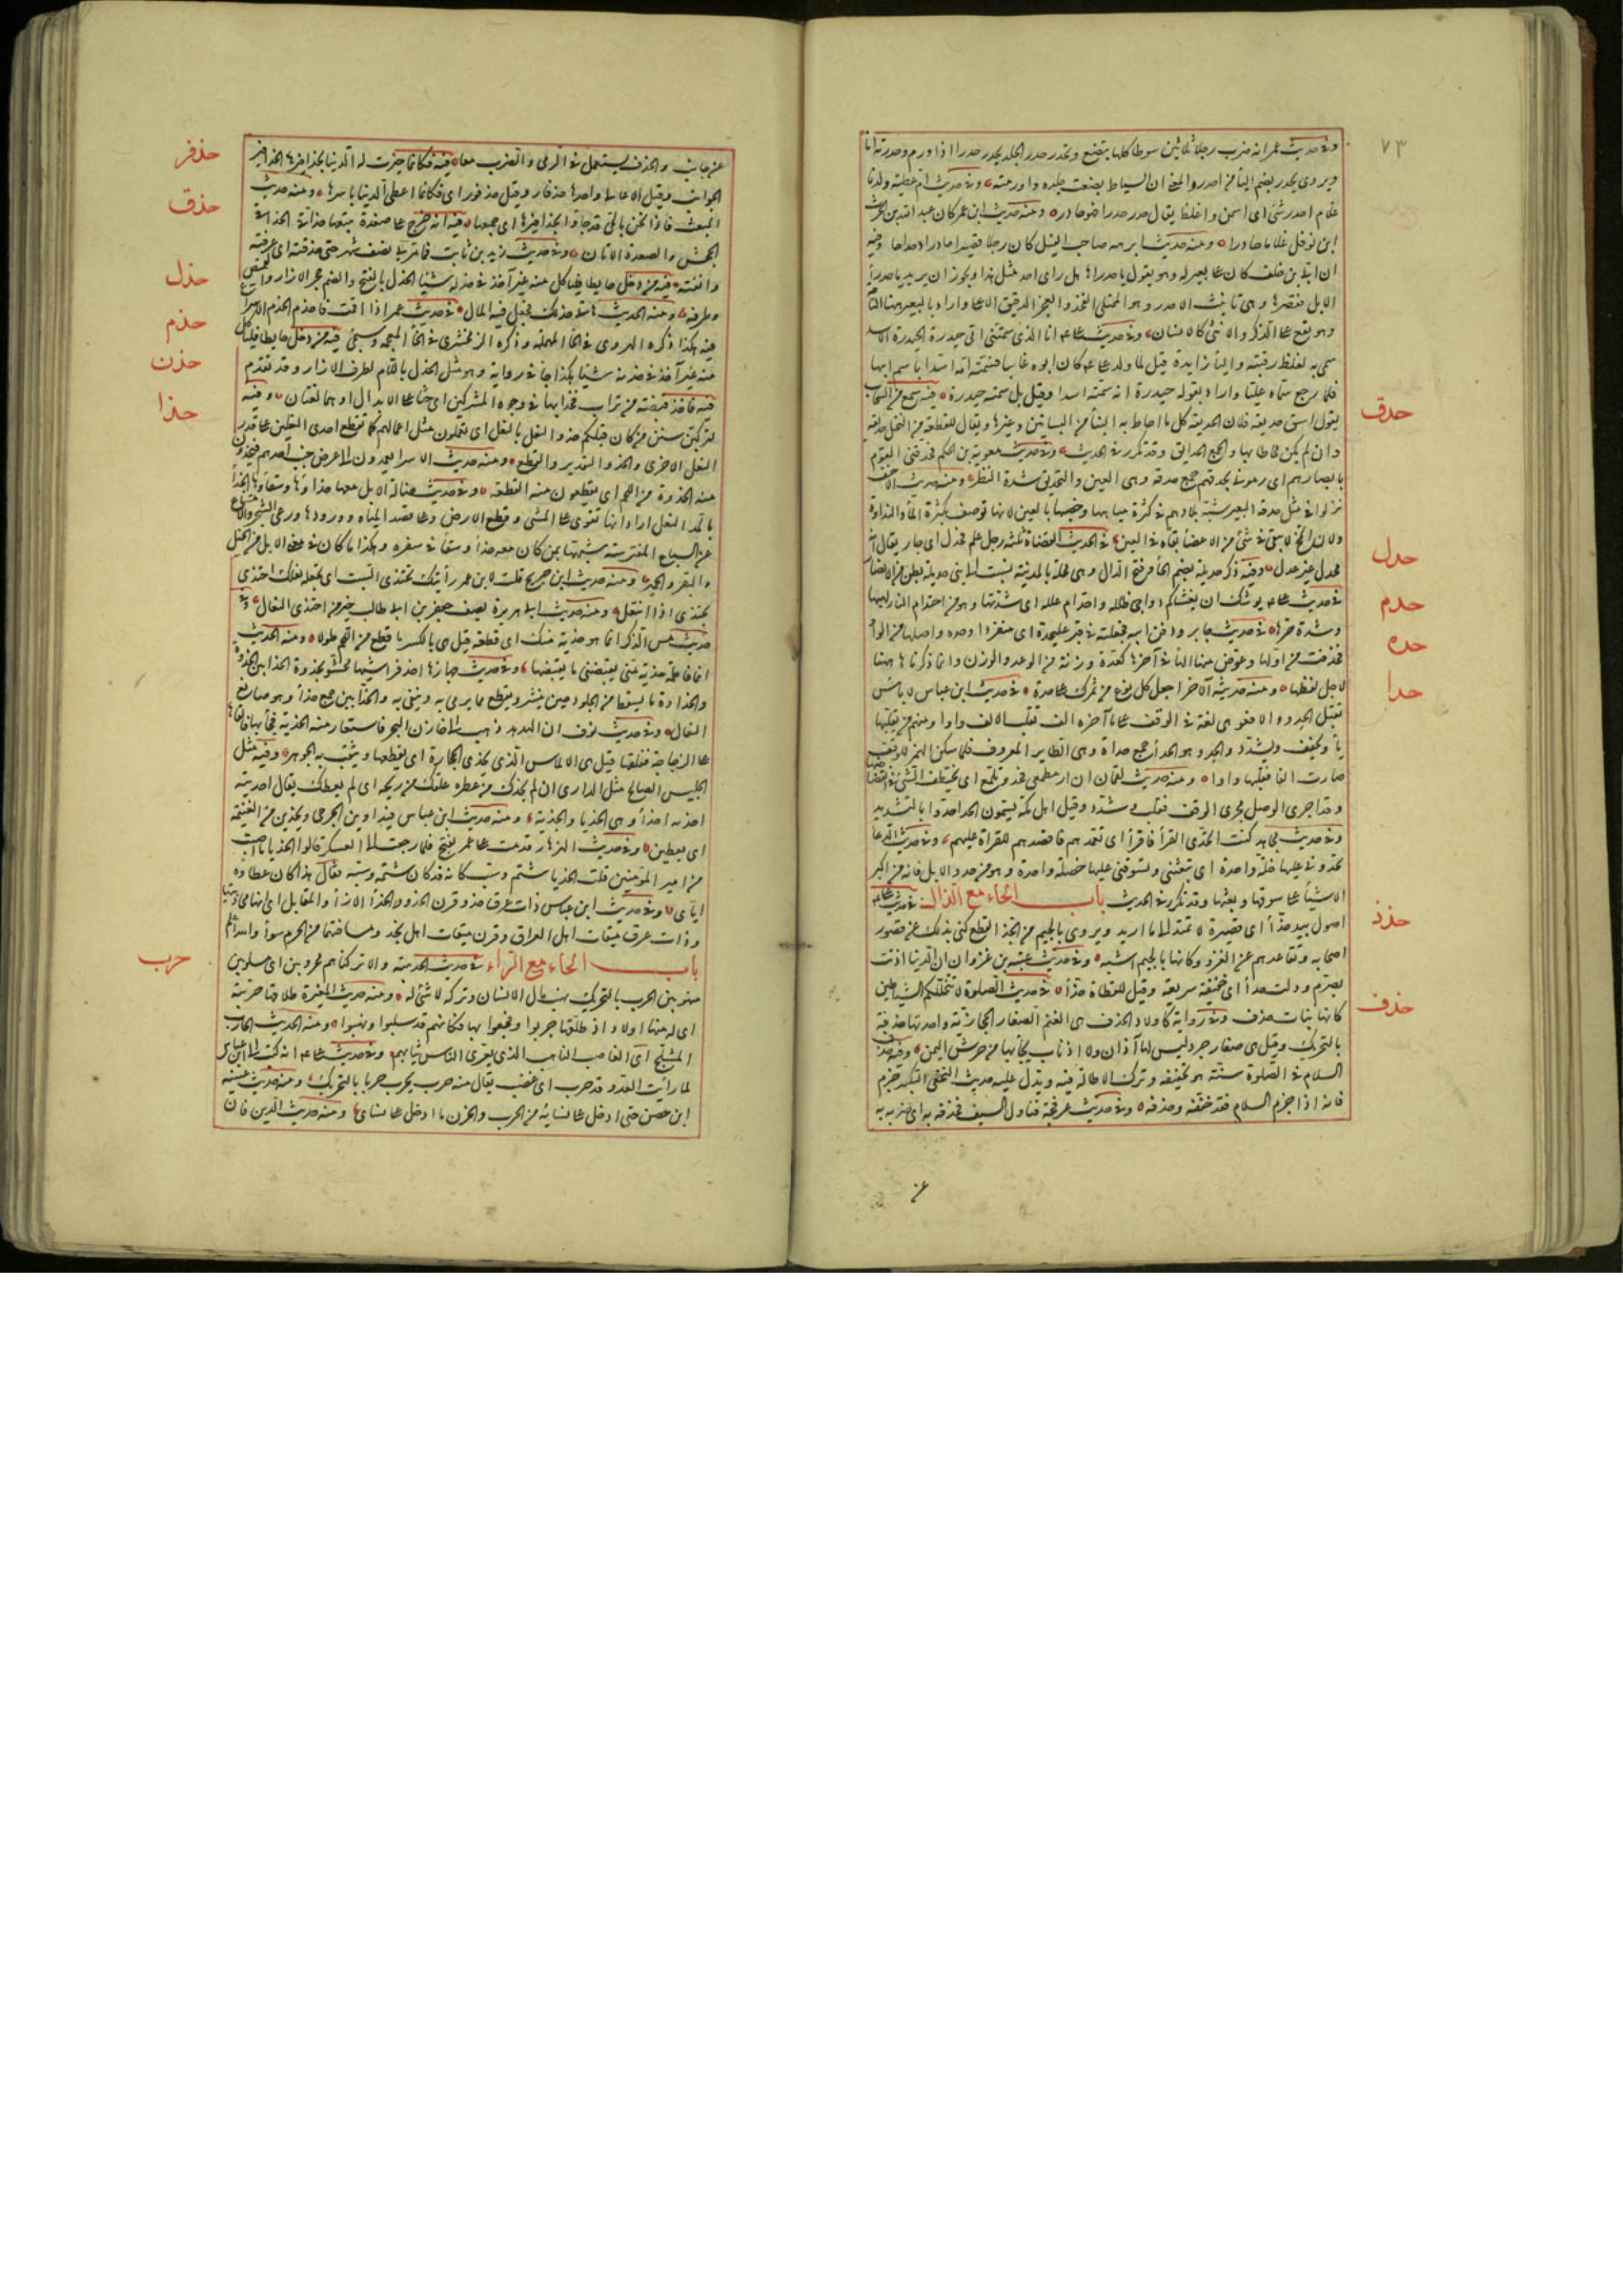 ٧٣
وفي حديث عمر انه ضرب رجلا ثلاثين سوطا كلها يبضع ويحدر حدر الجلد يحدر حدرا اذا ورم وحدرته انا
ويروى يحدر بضم الياء من احدر والمعنى ان السياط بضعت جلده واورمته وفي حديث ام عطية ولد لنا
غلام احدر شئ اى اسمن واغلظ يقال حدر حدرا فهو حادر ومنه حديث ابن عمر كان عبد الله بن الحرث
ابن نوفل غلاما حادرا ومنه حديث ابرهه صاحب الفيل كان رجلا قصيرا حادرا دحداحا وفيه
ان ابى بن خلف كان على بعير له وهو يقول يا حدراها هل راى احد مثل هذا ويجوز ان يريد يا حدراء
الابل فقصرها وهى تانيث الاحدر وهو الممتلى الفخذ والعجز الدقيق الاعلى واراد بالبعير هنا الناقة
وهو يقع على الذكر والانثى كالانسان وفي حديث على انا الذى سمتنى امى حيدرة الحيدرة الاسد
سمى به لغلظ رقبته والياء زايدة قيل لما ولد على كان ابوه غايبا فسمته امه اسدا باسم ابيها
فلما رجع سماه عليا واراد بقوله حيدرة انه سمته اسدا وقيل بل سمته حيدرة فيه سمع من السحاب
حدق
يقول اسق حديقة فلان الحديقة كل ما احاط به البناء من البساتين وغيرها ويقال للقطعة من النخل حديقة
وان لم يكن محاطا بها والجمع الحدايق وقد تكرر في الحديث وفي حديث معوية بن الحكم فحدقنى القوم
بابصارهم اى رمونى بحدقهم جمع حدقة وهى العين والتحديق شدة النظر ومنه حديث الاحنف
نزلوا في مثل حدقة البعير شبه بلادهم في كثرة مياهها وخصبها بالعين لانها توصف بكثرة الماء والنداوة
ولان المخ لا يبقى في شئ من الاعضاء بقاه في العين في الحديث القضاة ثلثة رجل علم فحدل اى جار يقال انه
حدل
لحدل غير عدل وفيه ذكر حديلة بضم الحاء وفتح الدال وهى محلة بالمدينة نسبت الى بنى حديلة بطن من الانصار
في حديث على يوشك ان يغشاكم دواجى ظلله واحتدام علله اى شدتها وهو من احتدام النار لهبها
حدم
وشدة حرها في حديث جابر ودفن ابيه فجعلته في قبر على حدة اى منفردا وحده واصلها من الواو
حده
فحذفت من اولها وعوض عنها الهاء في آخرها كعدة وزنة من الوعد والوزن وانما ذكرناها ههنا
لاجل لفظها ومنه حديثه الآخر اجعل كل نوع من تمرك على حدة في حديث ابن عباس لا باس
حدا
بقتل الحدو والافعو هى لغة في الوقف على ما آخره الف تقلب الالف واوا ومنهم من يقلبها
ياء ويخفف ويشدد والحدو هو الحدأ جمع حدأة وهى الطاير المعروف فلما سكن الهمز للوقف
صارت الفا فقلبها واوا ومنه حديث لقمان ان ار مطمعى فحدو تلمع اى يختطف الشئ في انقضاضها
وقد اجرى الوصل مجرى الوقف فقلب وشدد وقيل اهل مكة يسمون الحدأ حدوا بالتشديد
وفي حديث مجاهد كنت اتحدى القراء فاقرأ اى تعمدهم فاقصدهم للقراة عليهم وفي حديث الدعاء
تحدونى عليها خلة واحدة اى تبعثنى وتسوقنى عليها خصلة واحدة وهو من حدو الابل فانه من اكبر
الاشياء على سوقها وبعثها وقد تكرر في الحديث باب الحاء مع الذال في حديث على
حذذ
اصول بيد حذاء اى قصيرة لا تمتد الى ما اريد ويروى بالجيم من الجذ القطع كنى بذلك عن قصور
اصحابه وتقاعدهم عن الغزو وكانها بالجيم اشبه وفي حديث عتبة بن غزوان ان الدنيا اذنت
بصرم وولت حذاء اى خفيفة سريعة وقيل للقطاة حذاء في حديث الصلوة لا تتخللكم الشياطين
حذف
كانها بنات حذف وفي رواية كاولاد الحذف هى الغنم الصغار الحجازية واحدتها حذفة
بالتحريك وقيل هى صغار جرد ليس لها آذان ولا اذناب يجاء بها من جرش اليمن وفيه حذف
السلام في الصلوة سنة هو تخفيفه وترك الاطالة فيه ويدل عليه حديث النخعى التكبير جزم
فانه اذا جزم السلام فقد خففه وحذفه وفي حديث عرفجة فتناول السيف فحذفه به اى ضربه به
عن
عن جانب والحذف يستعمل في الرمى والضرب معا فيه فكانما حيزت له الدنيا بحذافيرها الحذافير
حذفر
الجوانب وقيل الاعالى واحدها حذفار وقيل حذفور اى فكانما اعطى الدنيا باسرها ومنه حديث
المبعث فاذا نحن بالحى قد جاؤا بحذافيرهم اى جميعهم فيه انه خرج على صعدة يتبعها حذاقى الحذاقى
حذق
الجحش والصعدة الاتان وفي حديث زيد بن ثابت فما مر بى نصف شهر حتى حذقته اى عرفته
واتقنته فيه من دخل حايطا فلياكل منه غير آخذ في حذله شيئا الحذل بالفتح والضم حجزة الازار والقميص
حذل
وطرفه ومنه الحديث هاتى حذلك فجعل فيه المال في حديث عمر اذا اقمت فاحذم الحذم الاسراع
حذم
فيه هكذا ذكره الهروى في الحاء المهملة وذكره الزمخشرى في الخاء المعجمة وسيجئ فيه من دخل حايطا فلياكل
حذن
منه غير آخذ في حذنه شيئا هكذا جاء في رواية وهو مثل الحذل باللام لطرف الازار وقد تقدم
فيه فاخذ قبضة من تراب فحذا بها في وجوه المشركين اى حثا على الابدال او هما لغتان وفيه
حذا
لتركبن سنن من كان قبلكم حذو النعل بالنعل اى تعملون مثل اعمالهم كما تقطع احدى النعلين على قدر
النعل الاخرى والحذو التقدير والقطع ومنه حديث الاسراء يعمدون الى عرض جنب احدهم فيحذون
منه الحذوة من اللحم اى يقطعون منه القطعة وفي حديث ضالة الابل معها حذاؤها وسقاؤها الحذاء
بالمد النعل اراد انها تقوى على المشى وقطع الارض وعلى قصد المياه وورودها ورعى الشجر والامتناع
عن السباع المفترسة شبهها بمن كان معه حذاء وسقاء في سفره وهكذا ما كان في معنى الابل من الخيل
والبقر والحمير ومنه حديث ابن جريج قلت لابن عمر رأيتك تحتذى السبت اى تجعله نعلك احتذى
يحتذى اذا انتعل ومنه حديث ابى هريرة يصف جعفر بن ابى طالب خير من احتذى النعال وفي
حديث مس الذكر انما هو حذية منك اى قطعة قيل هى بالكسر ما قطع من اللحم طولا ومنه الحديث
انما فاطمة حذية منى يقبضنى ما يقبضها وفي حديث جهازها احد فراشيها محشو بحذوة الحذائين الحذوة
والحذاوة ما يسقط من الجلود حين تبشر وتقطع مما يرمى به وينفى به والحذائين جمع حذاء وهو صانع
النعال وفي حديث نوف ان الهدهد ذهب الى خازن البحر فاستعار منه الحذية فجاء بها فالقاها
على الزجاجة ففلقها قيل هى الالماس الذى يحذى الحجارة اى يقطعها ويثقب به الجوهر وفيه مثل
الجليس الصالح مثل الدارى ان لم يحذك من عطره علقك من ريحه اى لم يعطك يقال احذيته
احذيه احذاء وهى الحذيا والحذية ومنه حديث ابن عباس فيداوين الجرحى ويحذين من الغنيمة
اى يعطين وفي حديث الهزهاز قدمت على عمر بفتح فلما رجعت الى العسكر قالوا الحذيا ما اصبت
من امير المؤمنين قلت الحذيا شتم وسب كانه قد كان شتمه وسبه فقال هذا كان عطاؤه
اياى وفي حديث ابن عباس ذات عرق حذو قرن الحذو والحذاء الازاء والمقابل اى انها محاذيتها
وذات عرق ميقات اهل العراق وقرن ميقات اهل نجد ومسافتهما من الحرم سواء والله اعلم
باب الحاء مع الراء في حديث الحديبية والا تركناهم محروبين اى مسلوبين
حرب
منهوبين الحرب بالتحريك نهب مال الانسان وتركه لا شئ له ومنه حديث المغيرة طلاقها حريبة
اى له منها اولاد اذ طلقها حربوا وفجعوا بها فكانهم قد سلبوا ونهبوا ومنه الحديث الحارب
المشلح اى الغاصب الناهب الذى يعرى الناس ثيابهم وفي حديث على انه كتب الى ابن عباس
لما رأيت العدو قد حرب اى غضب يقال منه حرب يحرب حربا بالتحريك ومنه حديث عيينة
ابن حصن حتى ادخل على نسائه من الحرب والحزن ما ادخل على نسائى ومنه حديث الدين فان